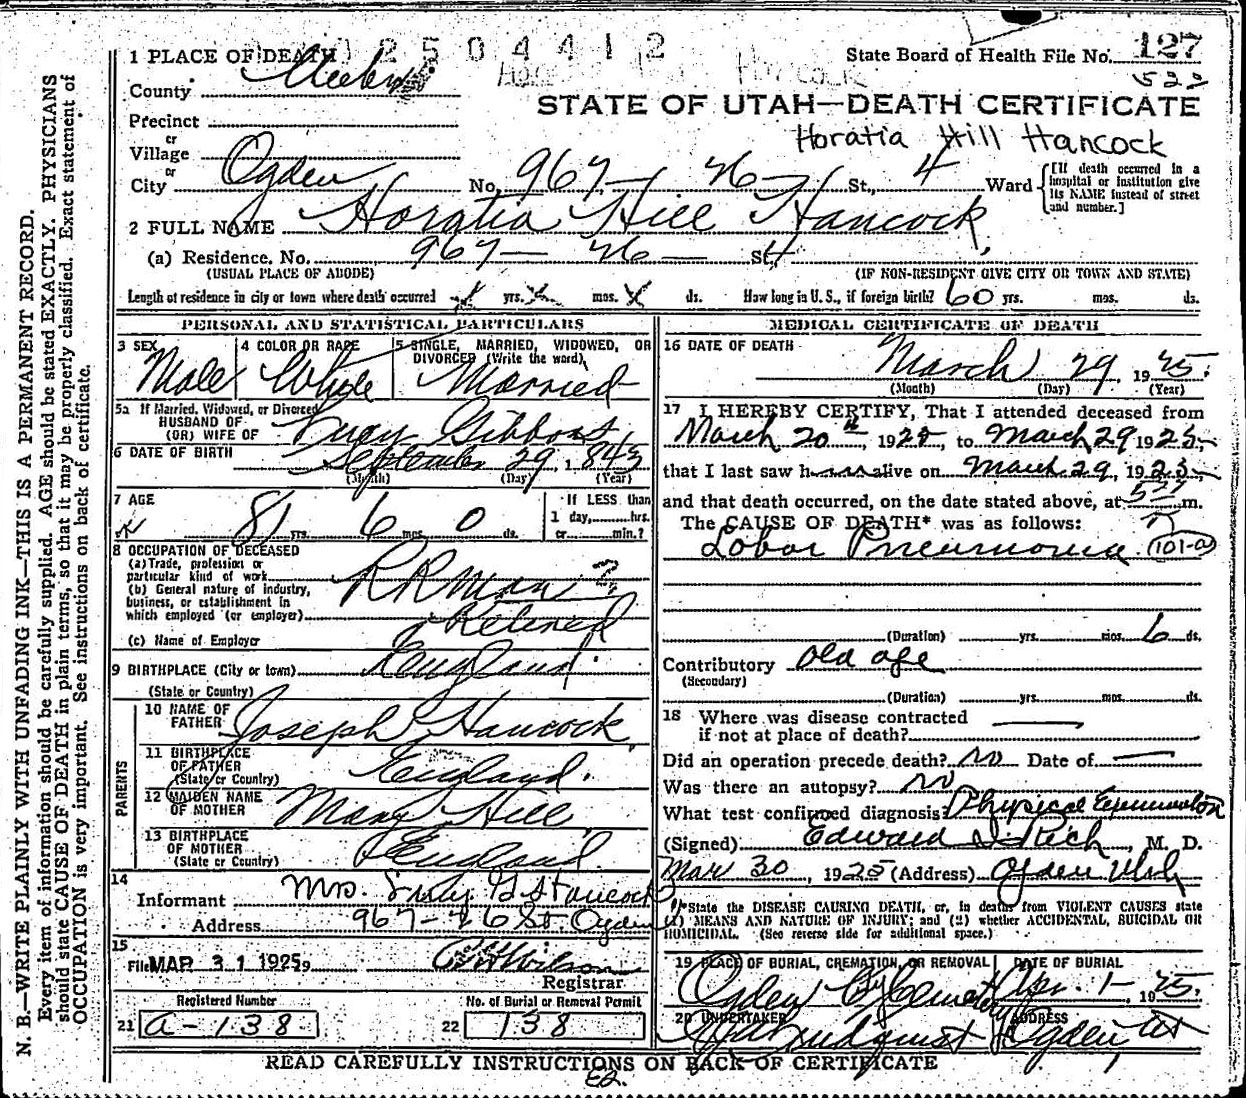 N. B.—WRITE PLAINLY WITH UNFADING INK—THIS IS A PERMANENT RECORD.
Every item of information should be carefully supplied. AGE should be stated EXACTLY. PHYSICIANS
should state CAUSE OF DEATH in plain terms, so that it may be properly classified. Exact statement of
OCCUPATION is very important. See instructions on back of certificate.
2504412
1 PLACE OF DEATH
State Board of Health File No. 127
522
County Weber
STATE OF UTAH—DEATH CERTIFICATE
Precinct
Horatia Hill Hancock
or
Village
or
City Ogden No. 967— 26— St., 4 Ward
[If death occurred in a hospital or institution give its NAME instead of street and number.]
2 FULL NAME Horatia Hill Hancock,
(a) Residence. No. 967— 26— St. 4
(USUAL PLACE OF ABODE) (IF NON-RESIDENT GIVE CITY OR TOWN AND STATE)
Length of residence in city or town where death occurred x yrs. x mos. x ds. How long in U. S., if foreign birth? 60 yrs. mos. ds.
PERSONAL AND STATISTICAL PARTICULARS
3 SEX Male
4 COLOR OR RACE White
5 SINGLE, MARRIED, WIDOWED, OR DIVORCED (Write the word) Married
5a If Married, Widowed, or Divorced
HUSBAND OF
(OR) WIFE OF Lucy Gibbons
6 DATE OF BIRTH September 29, 1843
(Month) (Day) (Year)
7 AGE 81 yrs. 6 mos. 0 ds.
If LESS than
1 day, hrs.
or min.?
8 OCCUPATION OF DECEASED
(a) Trade, profession or
particular kind of work R R man ?
(b) General nature of industry,
business, or establishment in
which employed (or employer) Retired
(c) Name of Employer
9 BIRTHPLACE (City or town) England
(State or Country)
PARENTS
10 NAME OF FATHER Joseph Hancock
11 BIRTHPLACE OF FATHER (State or Country) England.
12 MAIDEN NAME OF MOTHER Mary Hill
13 BIRTHPLACE OF MOTHER (State or Country) England.
14
Informant Mrs. Lucy G Hancock
Address 967-26 St. Ogden
15
Filed MAR 31 1925 Wilson
Registrar
Registered Number No. of Burial or Removal Permit
21 a-138 22 138
MEDICAL CERTIFICATE OF DEATH
16 DATE OF DEATH March 29 1925.
(Month) (Day) (Year)
17 I HEREBY CERTIFY, That I attended deceased from
March 20th, 1925, to March 29 1925,
that I last saw h alive on March 29, 1925,
and that death occurred, on the date stated above, at m.
The CAUSE OF DEATH* was as follows:
Lobar Pneumonia 101-a
(Duration) yrs. mos. 6 ds.
Contributory old age
(Secondary)
(Duration) yrs. mos. ds.
18 Where was disease contracted
if not at place of death?
Did an operation precede death? No Date of —
Was there an autopsy? No
What test confirmed diagnosis? Physical Examination
(Signed) Edward I. Rich, M. D.
Mar 30, 1925 (Address) Ogden Utah
*State the DISEASE CAUSING DEATH, or, in deaths from VIOLENT CAUSES state
(1) MEANS AND NATURE OF INJURY; and (2) whether ACCIDENTAL, SUICIDAL OR
HOMICIDAL. (See reverse side for additional space.)
19 PLACE OF BURIAL, CREMATION, OR REMOVAL DATE OF BURIAL
Ogden City Cemetery Apr. 1-, 1925.
20 UNDERTAKER ADDRESS
Lindquist Ogden Ut
READ CAREFULLY INSTRUCTIONS ON BACK OF CERTIFICATE